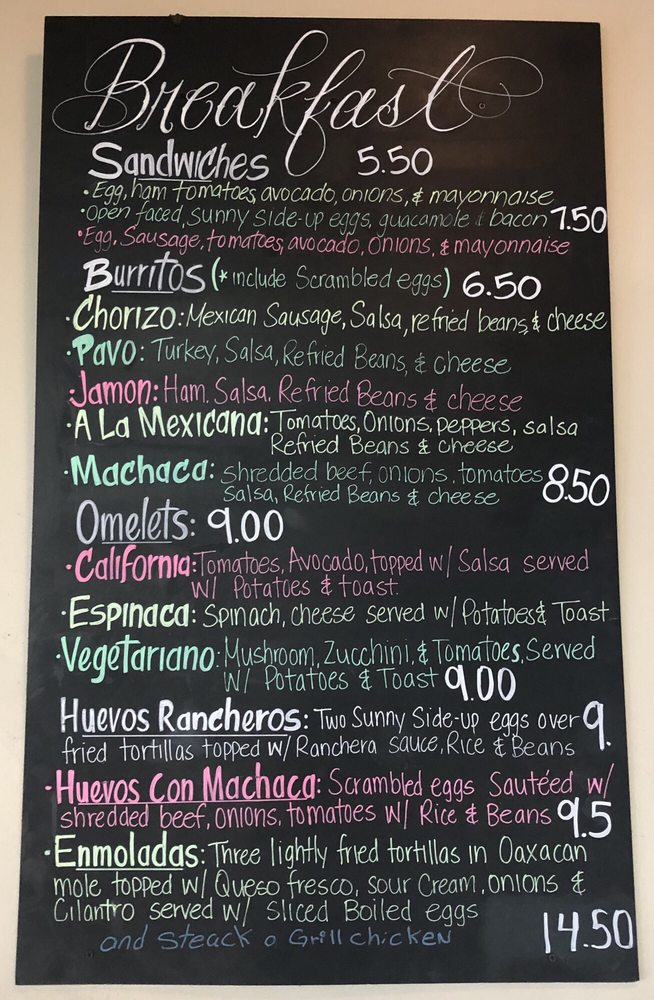 Breakfast
Sandwiches 5.50
• Egg, ham tomatoes, avocado, onions, & mayonnaise
• Open faced, sunny side-up eggs, guacamole & bacon 7.50
• Egg, Sausage, tomatoes, avocado, onions, & mayonnaise
Burritos (* include Scrambled eggs) 6.50
• Chorizo: Mexican Sausage, Salsa, refried beans, & cheese
• Pavo: Turkey, Salsa, Refried Beans, & cheese
• Jamon: Ham. Salsa. Refried Beans & cheese
• A La Mexicana: Tomatoes, Onions, peppers, salsa
Refried Beans & cheese
• Machaca: shredded beef, onions, tomatoes
Salsa, Refried Beans & cheese 8.50
Omelets: 9.00
• California: Tomatoes, Avocado, topped w/ Salsa served
w/ Potatoes & toast.
• Espinaca: Spinach, cheese served w/ Potatoes & Toast
• Vegetariano: Mushroom, Zucchini, & Tomatoes, Served
w/ Potatoes & Toast 9.00
Huevos Rancheros: Two Sunny Side-up eggs over 9.
fried tortillas topped w/ Ranchera sauce, Rice & Beans
• Huevos Con Machaca: Scrambled eggs Sautéed w/
shredded beef, onions, tomatoes w/ Rice & Beans 9.5
• Enmoladas: Three lightly fried tortillas in Oaxacan
mole topped w/ Queso fresco, sour Cream, onions &
Cilantro served w/ sliced Boiled eggs
and Steack o Grill chicken 14.50